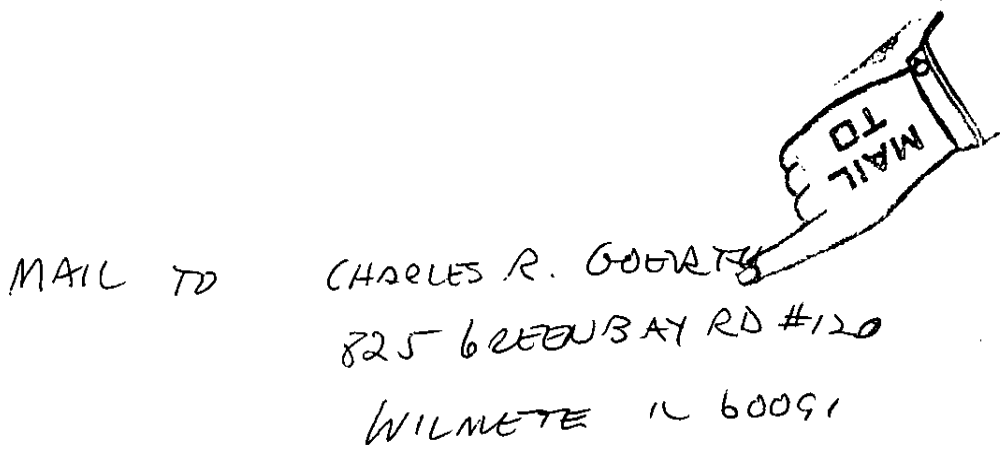 MAIL
TO
MAIL TO CHARLES R. GOERTH
825 GREENBAY RD #120
WILMETE IL 60091